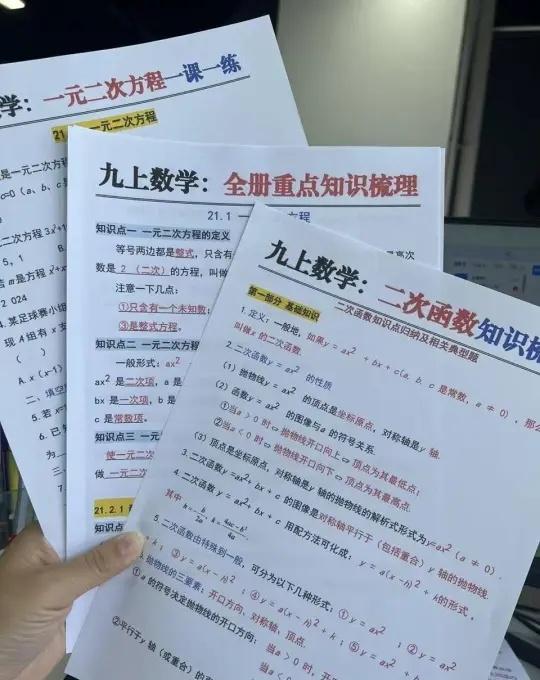 学：一元二次方程一课一练
21. 一元二次方程
是一元二次方程
c=0（a、b、c是
二次方程3x²+1
5，1 B.
若m是方程x²+x
2 024
4.某足球赛小组
现A组有x支
（ ）
A.x（x-1）
二、填空
5.若x=
6.已知
为
三、
7.
九上数学：全册重点知识梳理
21.1 一 方程
知识点一 一元二次方程的定义
等号两边都是整式，只含有
数是2（二次）的方程，叫做
注意一下几点：
①只含有一个未知数；
③是整式方程。
知识点二 一元二次方程
一般形式：ax²
ax²是二次项，a是
bx是一次项，b是
c是常数项。
知识点三 一元
使一元二次
做一元二次
21.2.1
知识点
九上数学：二次函数知识梳
二次函数知识点归纳及相关典型题
第一部分 基础知识
1.定义：一般地，如果y=ax²+bx+c(a,b,c是常数，a≠0)，那么
叫做x的二次函数.
2.二次函数y=ax²的性质
(1)抛物线y=ax²的顶点是坐标原点，对称轴是y轴.
(2)函数y=ax²的图像与a的符号关系.
①当a>0时⇔抛物线开口向上⇔顶点为其最低点；
②当a<0时⇔抛物线开口向下⇔顶点为其最高点.
(3)顶点是坐标原点，对称轴是y轴的抛物线的解析式形式为y=ax²(a≠0).
3.二次函数y=ax²+bx+c的图像是对称轴平行于（包括重合）y轴的抛物线.
4.二次函数y=ax²+bx+c用配方法可化成：y=a(x-h)²+k的形式，
其中h=-b/2a，k=4ac-b²/4a.
5.二次函数由特殊到一般，可分为以下几种形式：①y=ax²；②y=ax²
+k；③y=a(x-h)²；④y=a(x-h)²+k；⑤y=ax²+b
抛物线的三要素：开口方向、对称轴、顶点.
①a的符号决定抛物线的开口方向：当a>0时，开
当a<
②平行于y轴（或重合）的